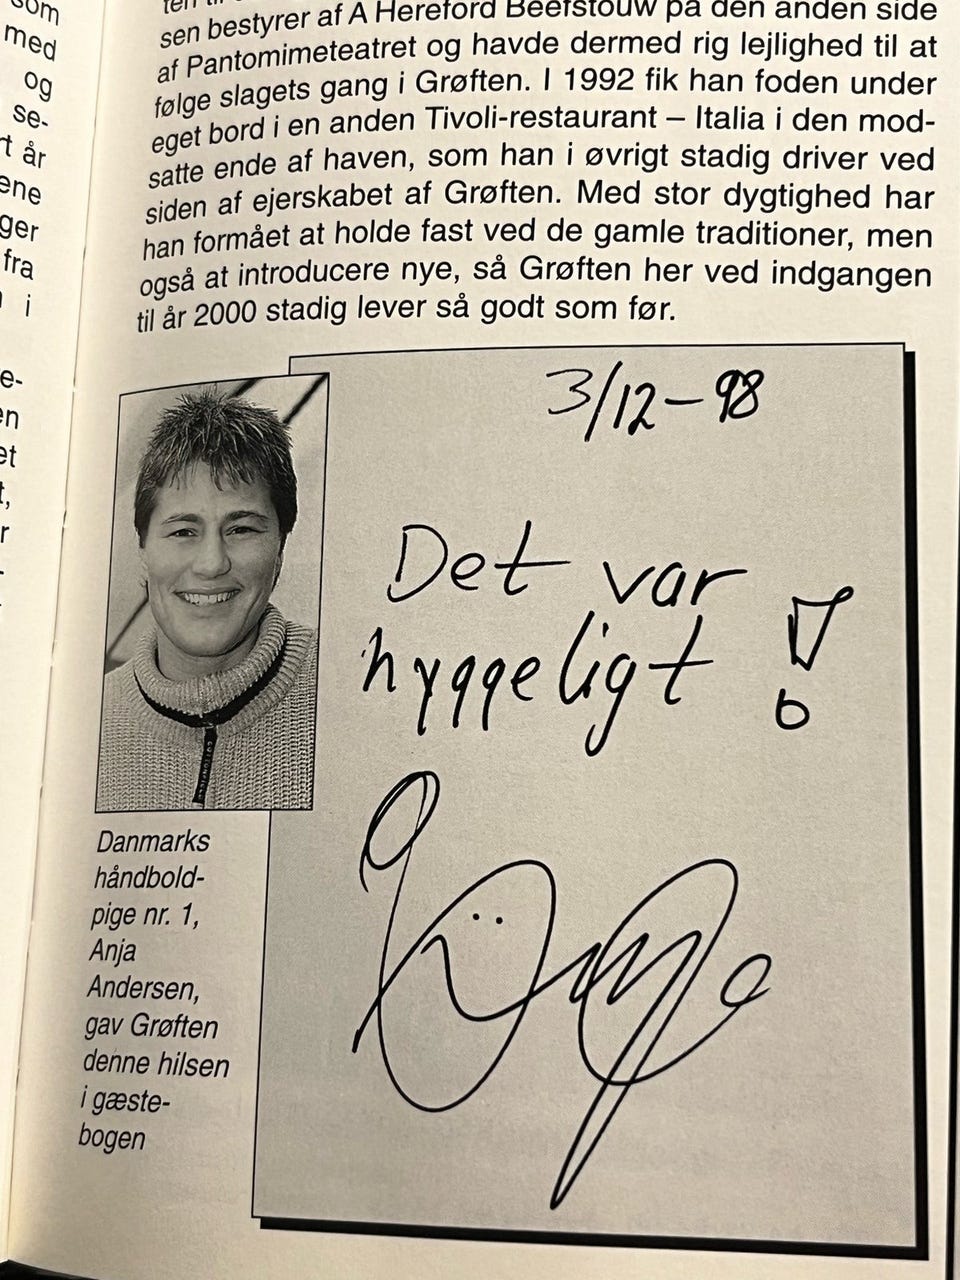 som
med
og
se-
rt år
ene
ger
fra
i
e-
en
et
t,
r
sen bestyrer af A Hereford Beefstouw på den anden side
af Pantomimeteatret og havde dermed rig lejlighed til at
følge slagets gang i Grøften. I 1992 fik han foden under
eget bord i en anden Tivoli-restaurant – Italia i den mod-
satte ende af haven, som han i øvrigt stadig driver ved
siden af ejerskabet af Grøften. Med stor dygtighed har
han formået at holde fast ved de gamle traditioner, men
også at introducere nye, så Grøften her ved indgangen
til år 2000 stadig lever så godt som før.
3/12-98
Det var
hyggeligt !
Anja
Danmarks
håndbold-
pige nr. 1,
Anja
Andersen,
gav Grøften
denne hilsen
i gæste-
bogen